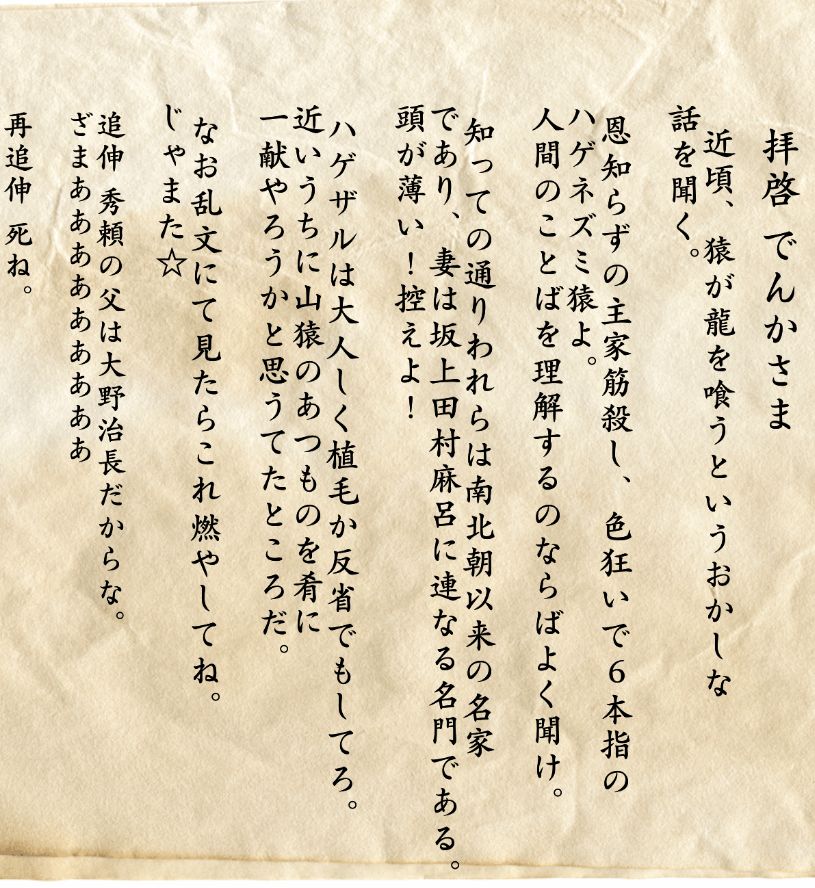 拝啓 でんかさま
近頃、猿が龍を喰うというおかしな
話を聞く。
恩知らずの主家筋殺し、色狂いで６本指の
ハゲネズミ猿よ。
人間のことばを理解するのならばよく聞け。
知っての通りわれらは南北朝以来の名家
であり、妻は坂上田村麻呂に連なる名門である。
頭が薄い！控えよ！
ハゲザルは大人しく植毛か反省でもしてろ。
近いうちに山猿のあつものを肴に
一献やろうかと思うてたところだ。
なお乱文にて見たらこれ燃やしてね。
じゃまた☆
追伸 秀頼の父は大野治長だからな。
ざまあああああああああ
再追伸 死ね。